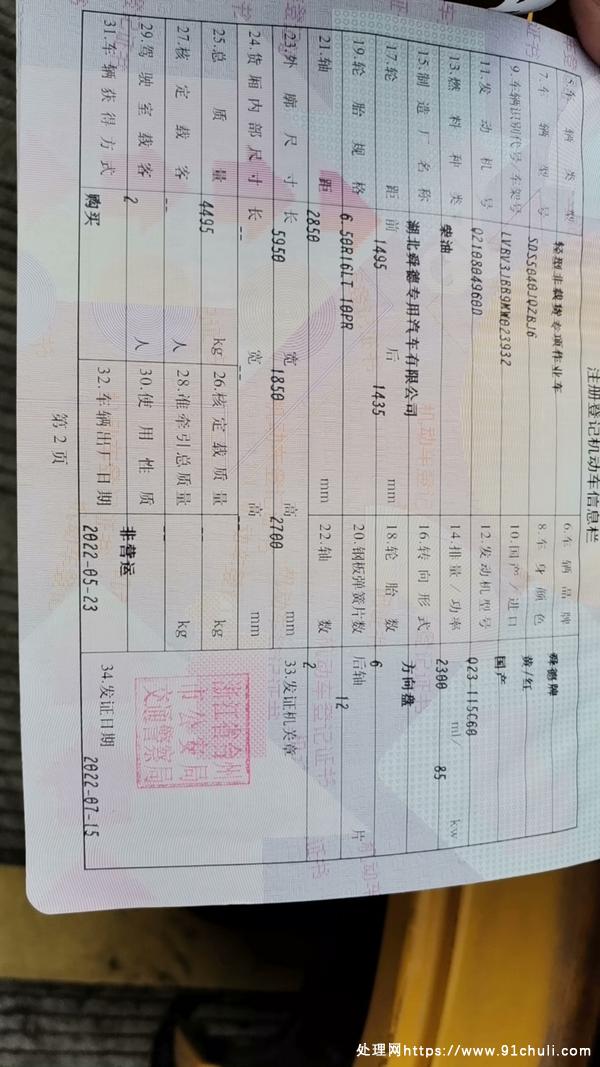 注册登记机动车信息栏
5.车辆类型 轻型非载货专项作业车 6.车辆品牌 舜德牌
7.车辆型号 SDS5040JQZBJ6 8.车身颜色 黄/红
9.车辆识别代号/车架号 LVBV3JBB9MW023932 10.国产/进口 国产
11.发动机号 Q210804960D 12.发动机型号 Q23-115C60
13.燃料种类 柴油 14.排量/功率 2300 ml/ 85 kw
15.制造厂名称 湖北舜德专用汽车有限公司 16.转向形式 方向盘
17.轮距 前 1495 后 1435 mm 18.轮胎数 6
19.轮胎规格 6.50R16LT 10PR 20.钢板弹簧片数 后轴 12 片
21.轴距 2850 mm 22.轴数 2
23.外廓尺寸 长 5950 宽 1850 高 2700 mm 33.发证机关章
24.货厢内部尺寸 长 -- 宽 -- 高 -- mm
25.总质量 4495 kg 26.核定载质量 -- kg
27.核定载客 -- 人 28.准牵引总质量 -- kg
29.驾驶室载客 2 人 30.使用性质 非营运
31.车辆获得方式 购买 32.车辆出厂日期 2022-05-23 34.发证日期 2022-07-15
浙江省台州
市公安局
交通警察局
第2页
处理网https://www.91chuli.com/